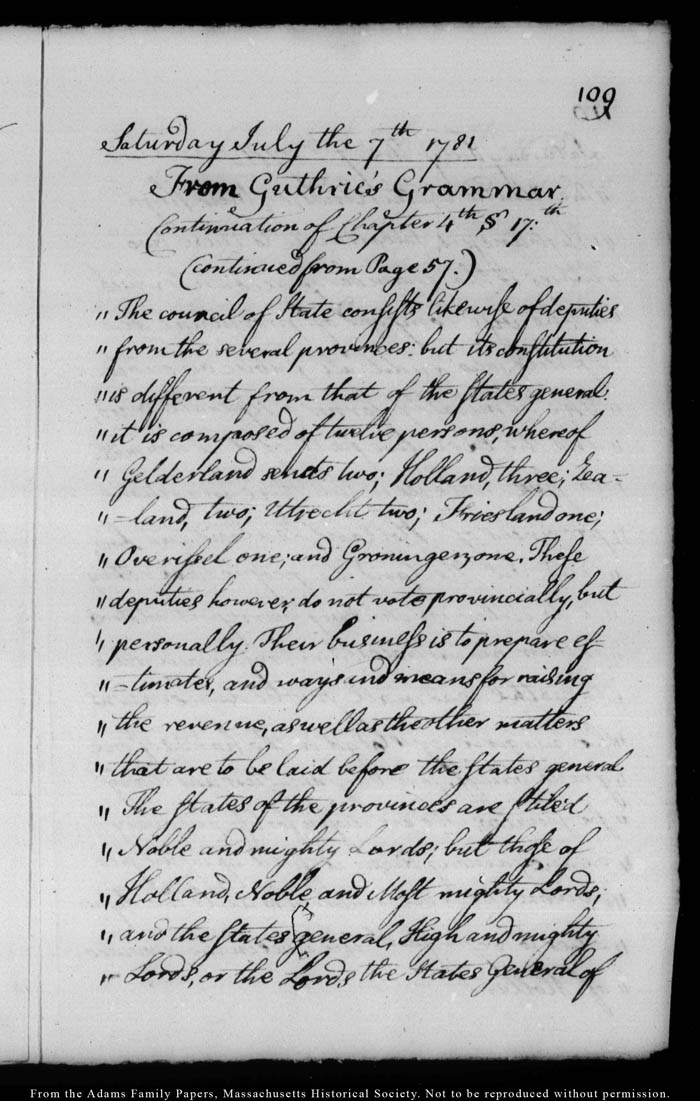 109
Saturday July the 7th 1781
From Guthrie's Grammar,
Continuation of Chapter 4th § 17:th
(continued from Page 57.)
" The council of State consists likewise of deputies
" from the several provinces: but its constitution
" is different from that of the States general.
" it is composed of twelve persons, whereof
" Gelderland sends two; Holland, three; Zea=
" =land, two; Utrecht two; Friesland one;
" Overissel one; and Groningen, one. These
" deputies however, do not vote provincially, but
" personally. Their business is to prepare es=
" =timates, and ways and means for raising
" the revenue, as well as the other matters
" that are to be laid before the States general
" The States of the provinces are stiled
" Noble and mighty Lords; but those of
" Holland, Noble and Most mighty Lords;
" and the States general, High and mighty
" Lords, or the Lords the States General of
From the Adams Family Papers, Massachusetts Historical Society. Not to be reproduced without permission.